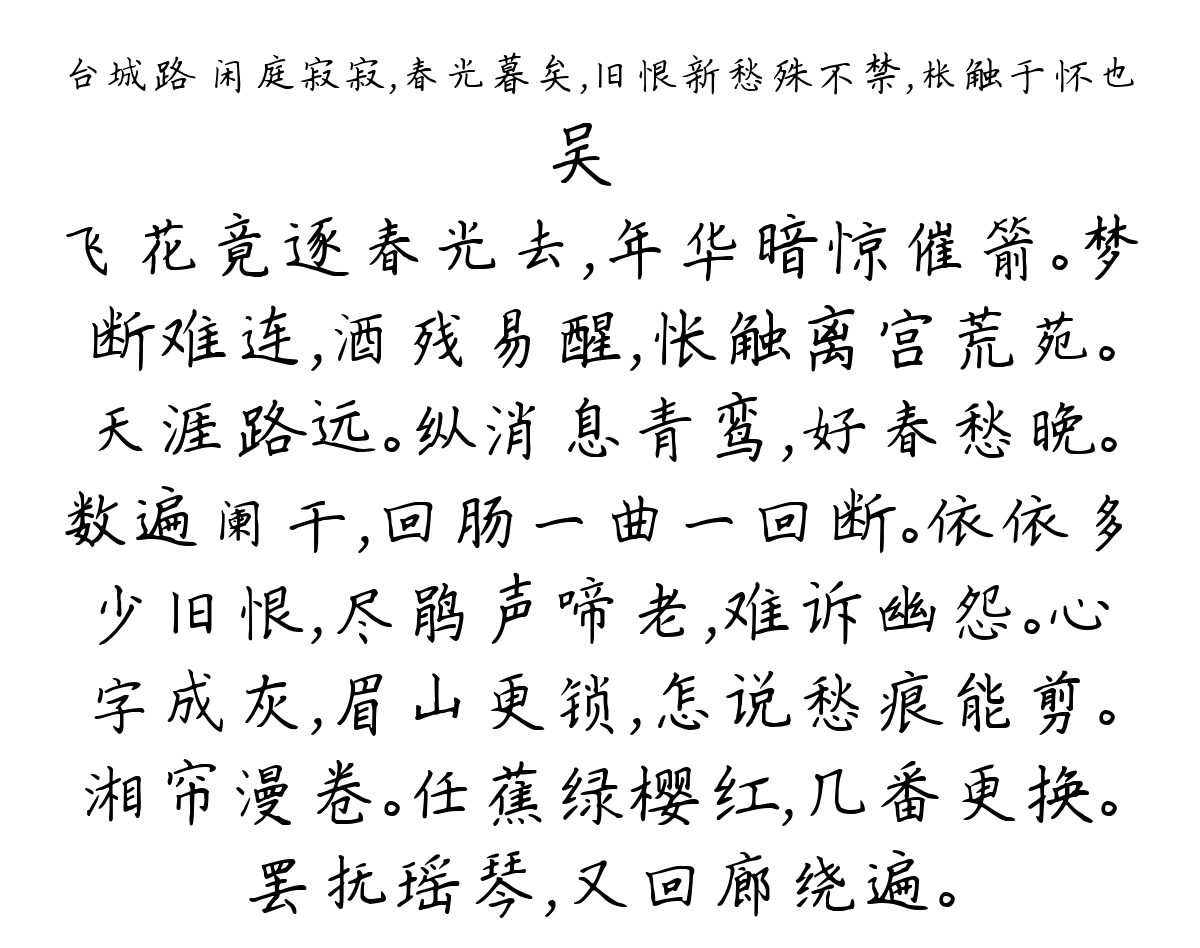 台城路 闲庭寂寂,春光暮矣,旧恨新愁殊不禁,枨触于怀也
吴
飞花竟逐春光去,年华暗惊催箭。梦
断难连,酒残易醒,怅触离宫荒苑。
天涯路远。纵消息青鸾,好春愁晚。
数遍阑干,回肠一曲一回断。依依多
少旧恨,尽鹃声啼老,难诉幽怨。心
字成灰,眉山更锁,怎说愁痕能剪。
湘帘漫卷。任蕉绿樱红,几番更换。
罢抚瑶琴,又回廊绕遍。